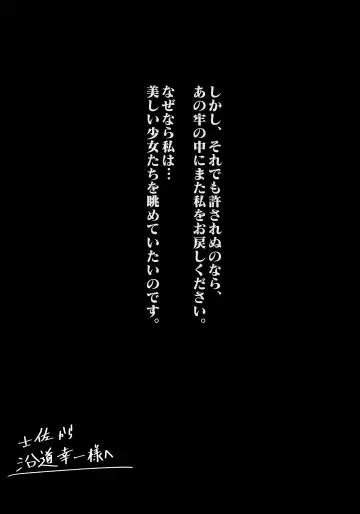 しかし、それでも許されぬのなら、
あの牢の中にまた私をお戻しください。
なぜなら私は…
美しい少女たちを眺めていたいのです。
士佐から
沿道幸一様へ